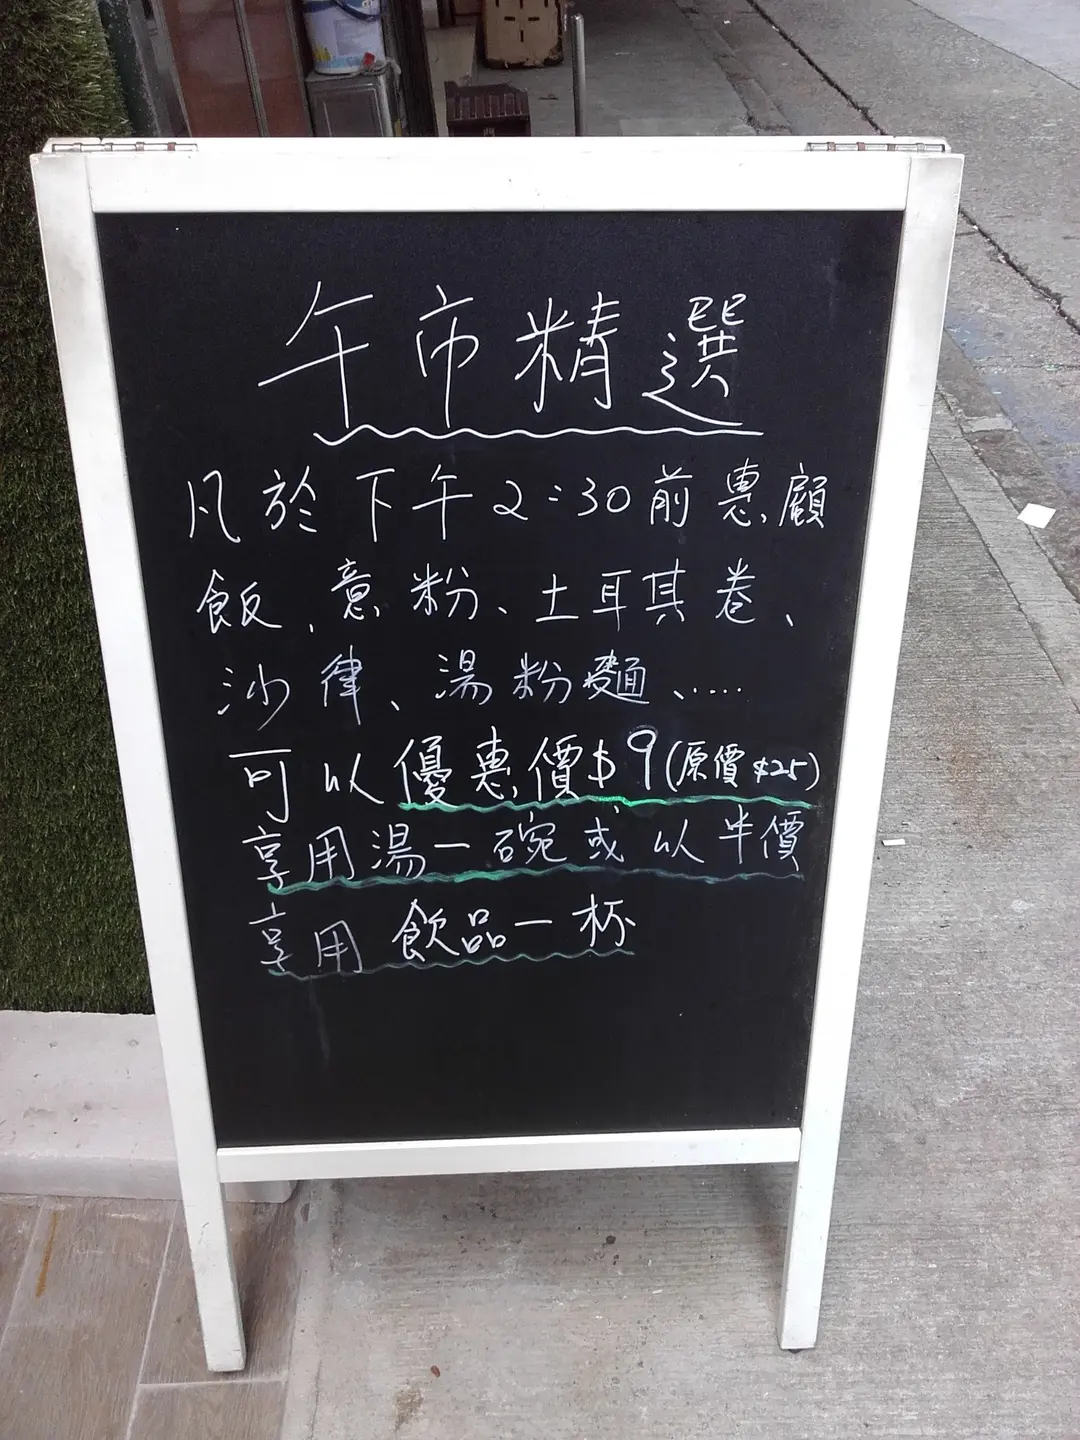 午市精選
凡於下午2:30前惠顧
飯、意粉、土耳其卷、
沙律、湯粉麵、.....
可以優惠價$9(原價$25)
享用湯一碗或以半價
享用飲品一杯